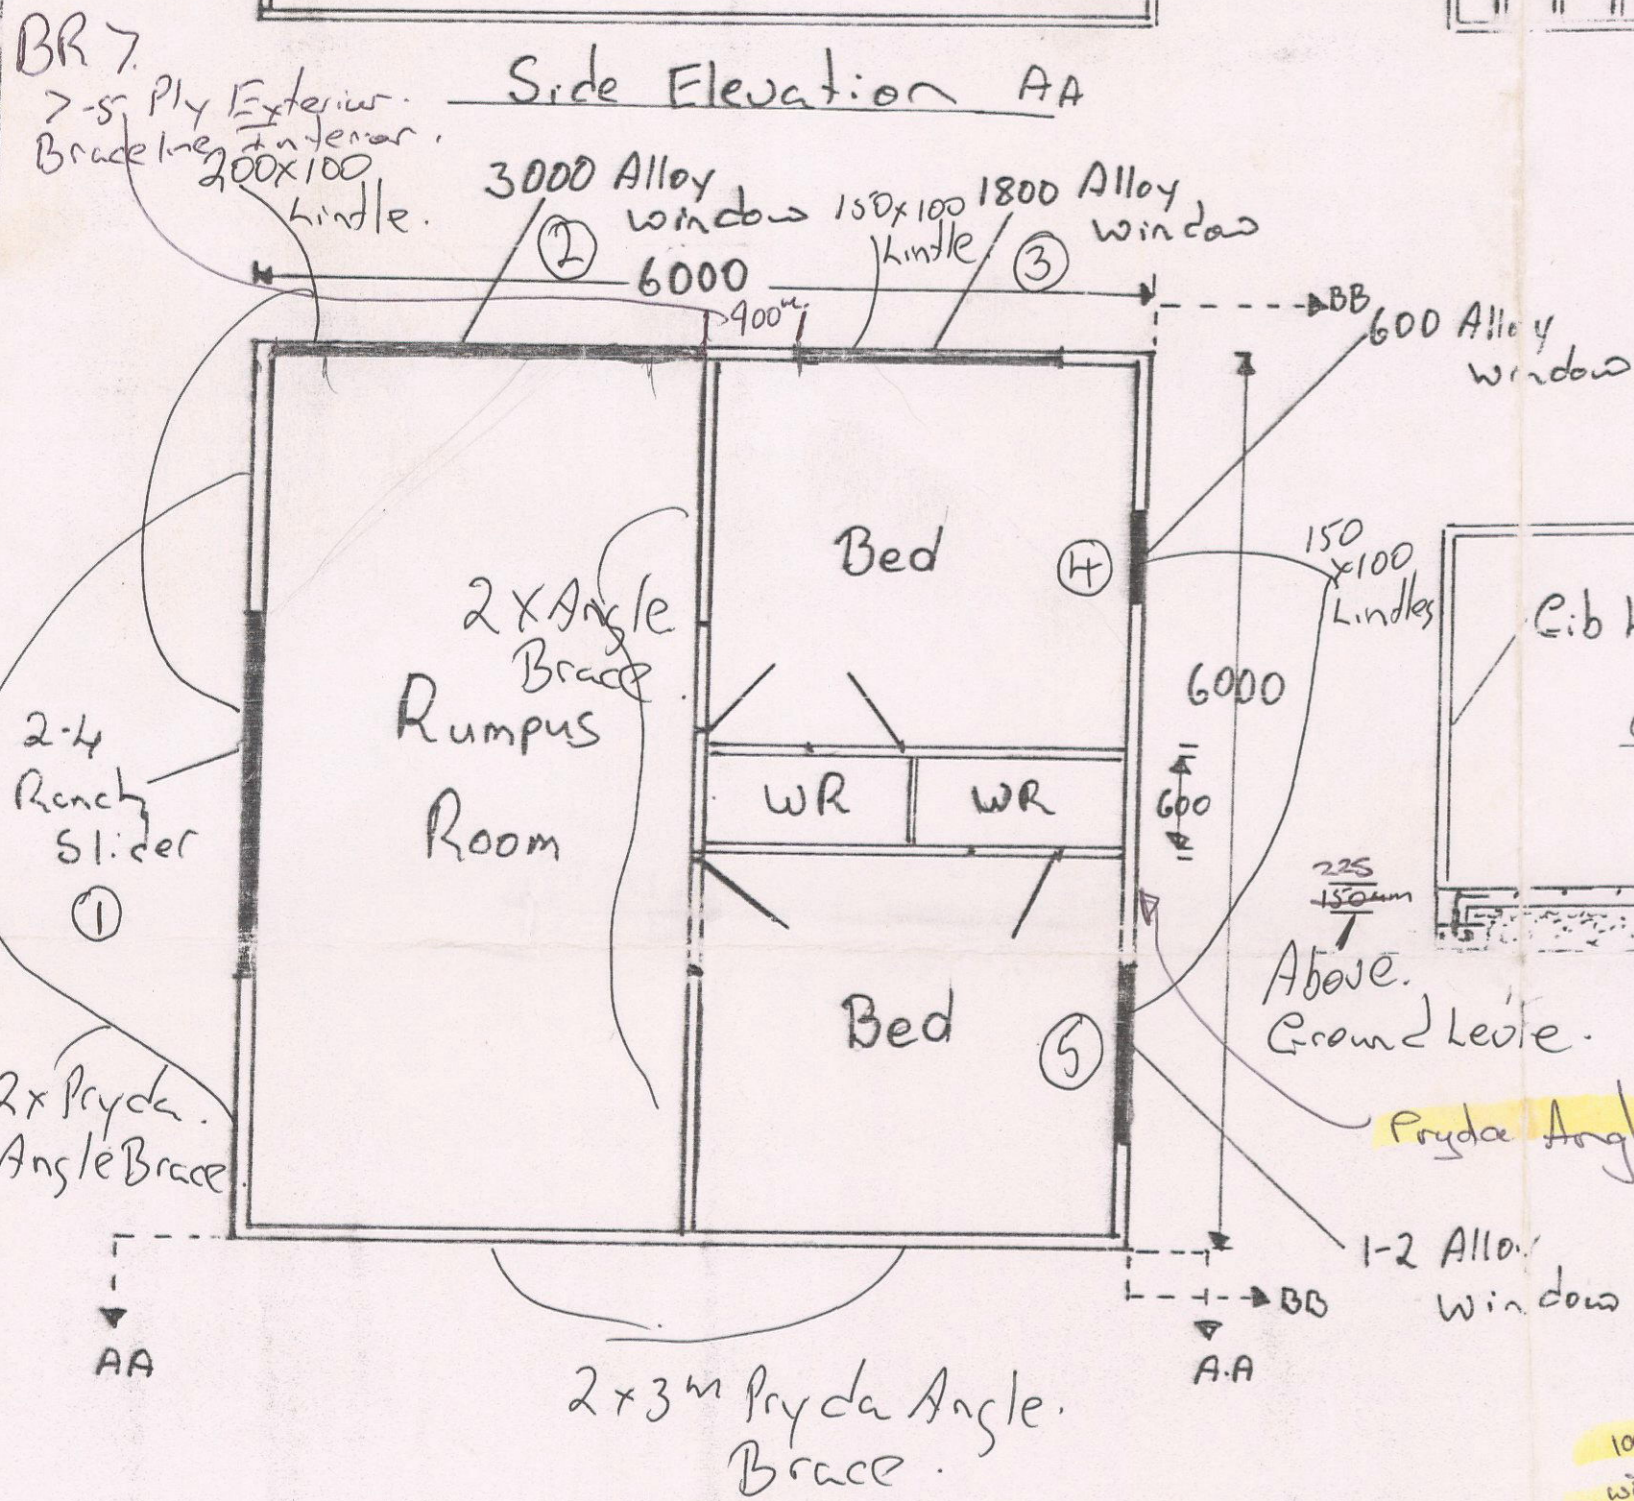 BR 7.
7-5 Ply Exterior.
Braceline Interior.
Side Elevation AA
200x100
Lintle.
3000 Alloy
window
②
150x100
Lintle
1800 Alloy
window
③
6000
900
BB
600 Alloy
window
Bed
④
150
x100
Lintles
Gib
2 x Angle
Brace.
Rumpus
Room
6000
2-4
Ranch
Slider
①
WR
WR
600
225
150mm
Above.
Ground Levle.
Bed
⑤
2x Pryda.
Angle Brace
Pryda Angl
1-2 Alloy
window
BB
AA
A.A
2 x 3m Pryda Angle.
Brace.
10
wi